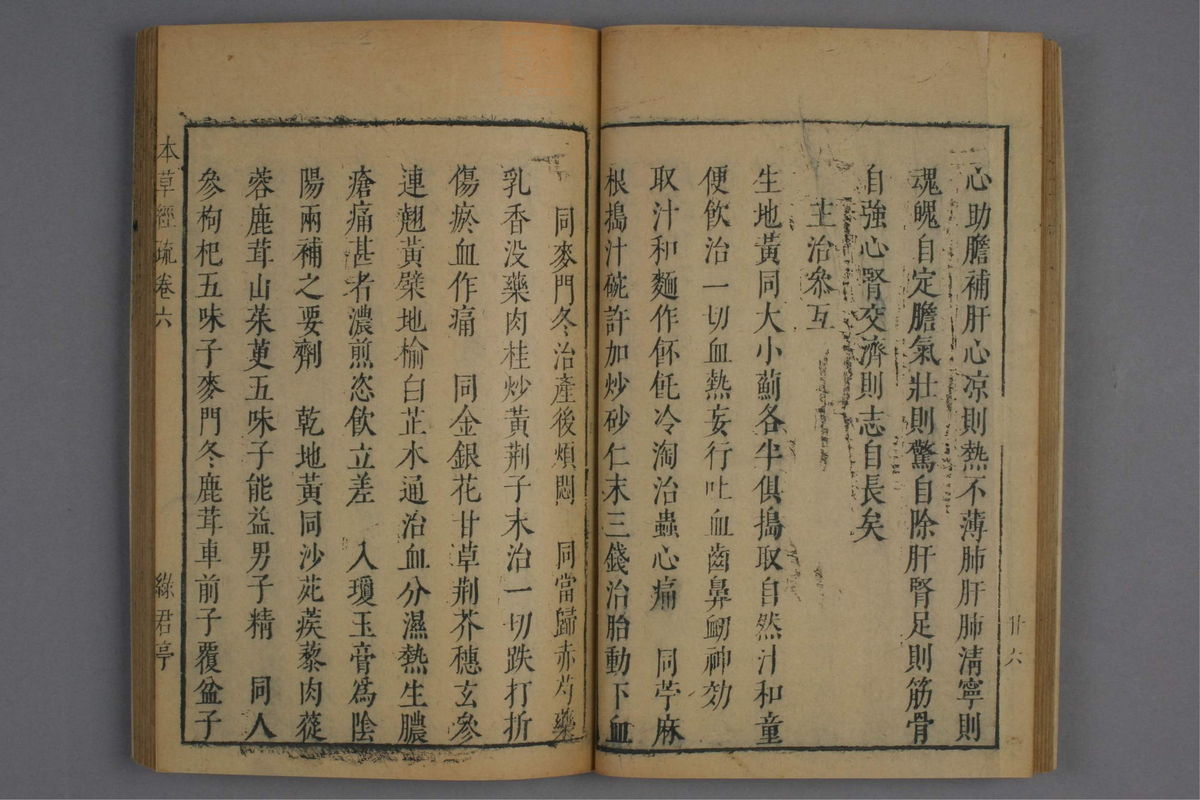 心助膽補肝心凉則熱不薄肺肝肺淸寧則
魂魄自定膽氣壯則驚自除肝腎足則筋骨
自強心腎交濟則志自長矣
主治叅互
生地黃同大小薊各半俱搗取自然汁和童
便飮治一切血熱妄行吐血齒鼻衂神効
取汁和麵作飥冷淘治蟲心痛 同苧麻
根搗汁碗許加炒砂仁末三錢治胎動下血
同麥門冬治產後煩悶 同當歸赤芍藥
乳香没藥肉桂炒黃荆子末治一切跌打折
傷瘀血作痛 同金銀花甘草荆芥穗玄參
連翹黃檗地榆白芷木通治血分濕熱生膿
瘡痛甚者濃煎恣飮立差 入瓊玉膏爲陰
陽兩補之要劑 乾地黃同沙苑蒺藜肉蓯
蓉鹿茸山茱萸五味子能益男子精 同人
參枸杞五味子麥門冬鹿茸車前子覆盆子
本草經疏卷六
綠君亭
卄六